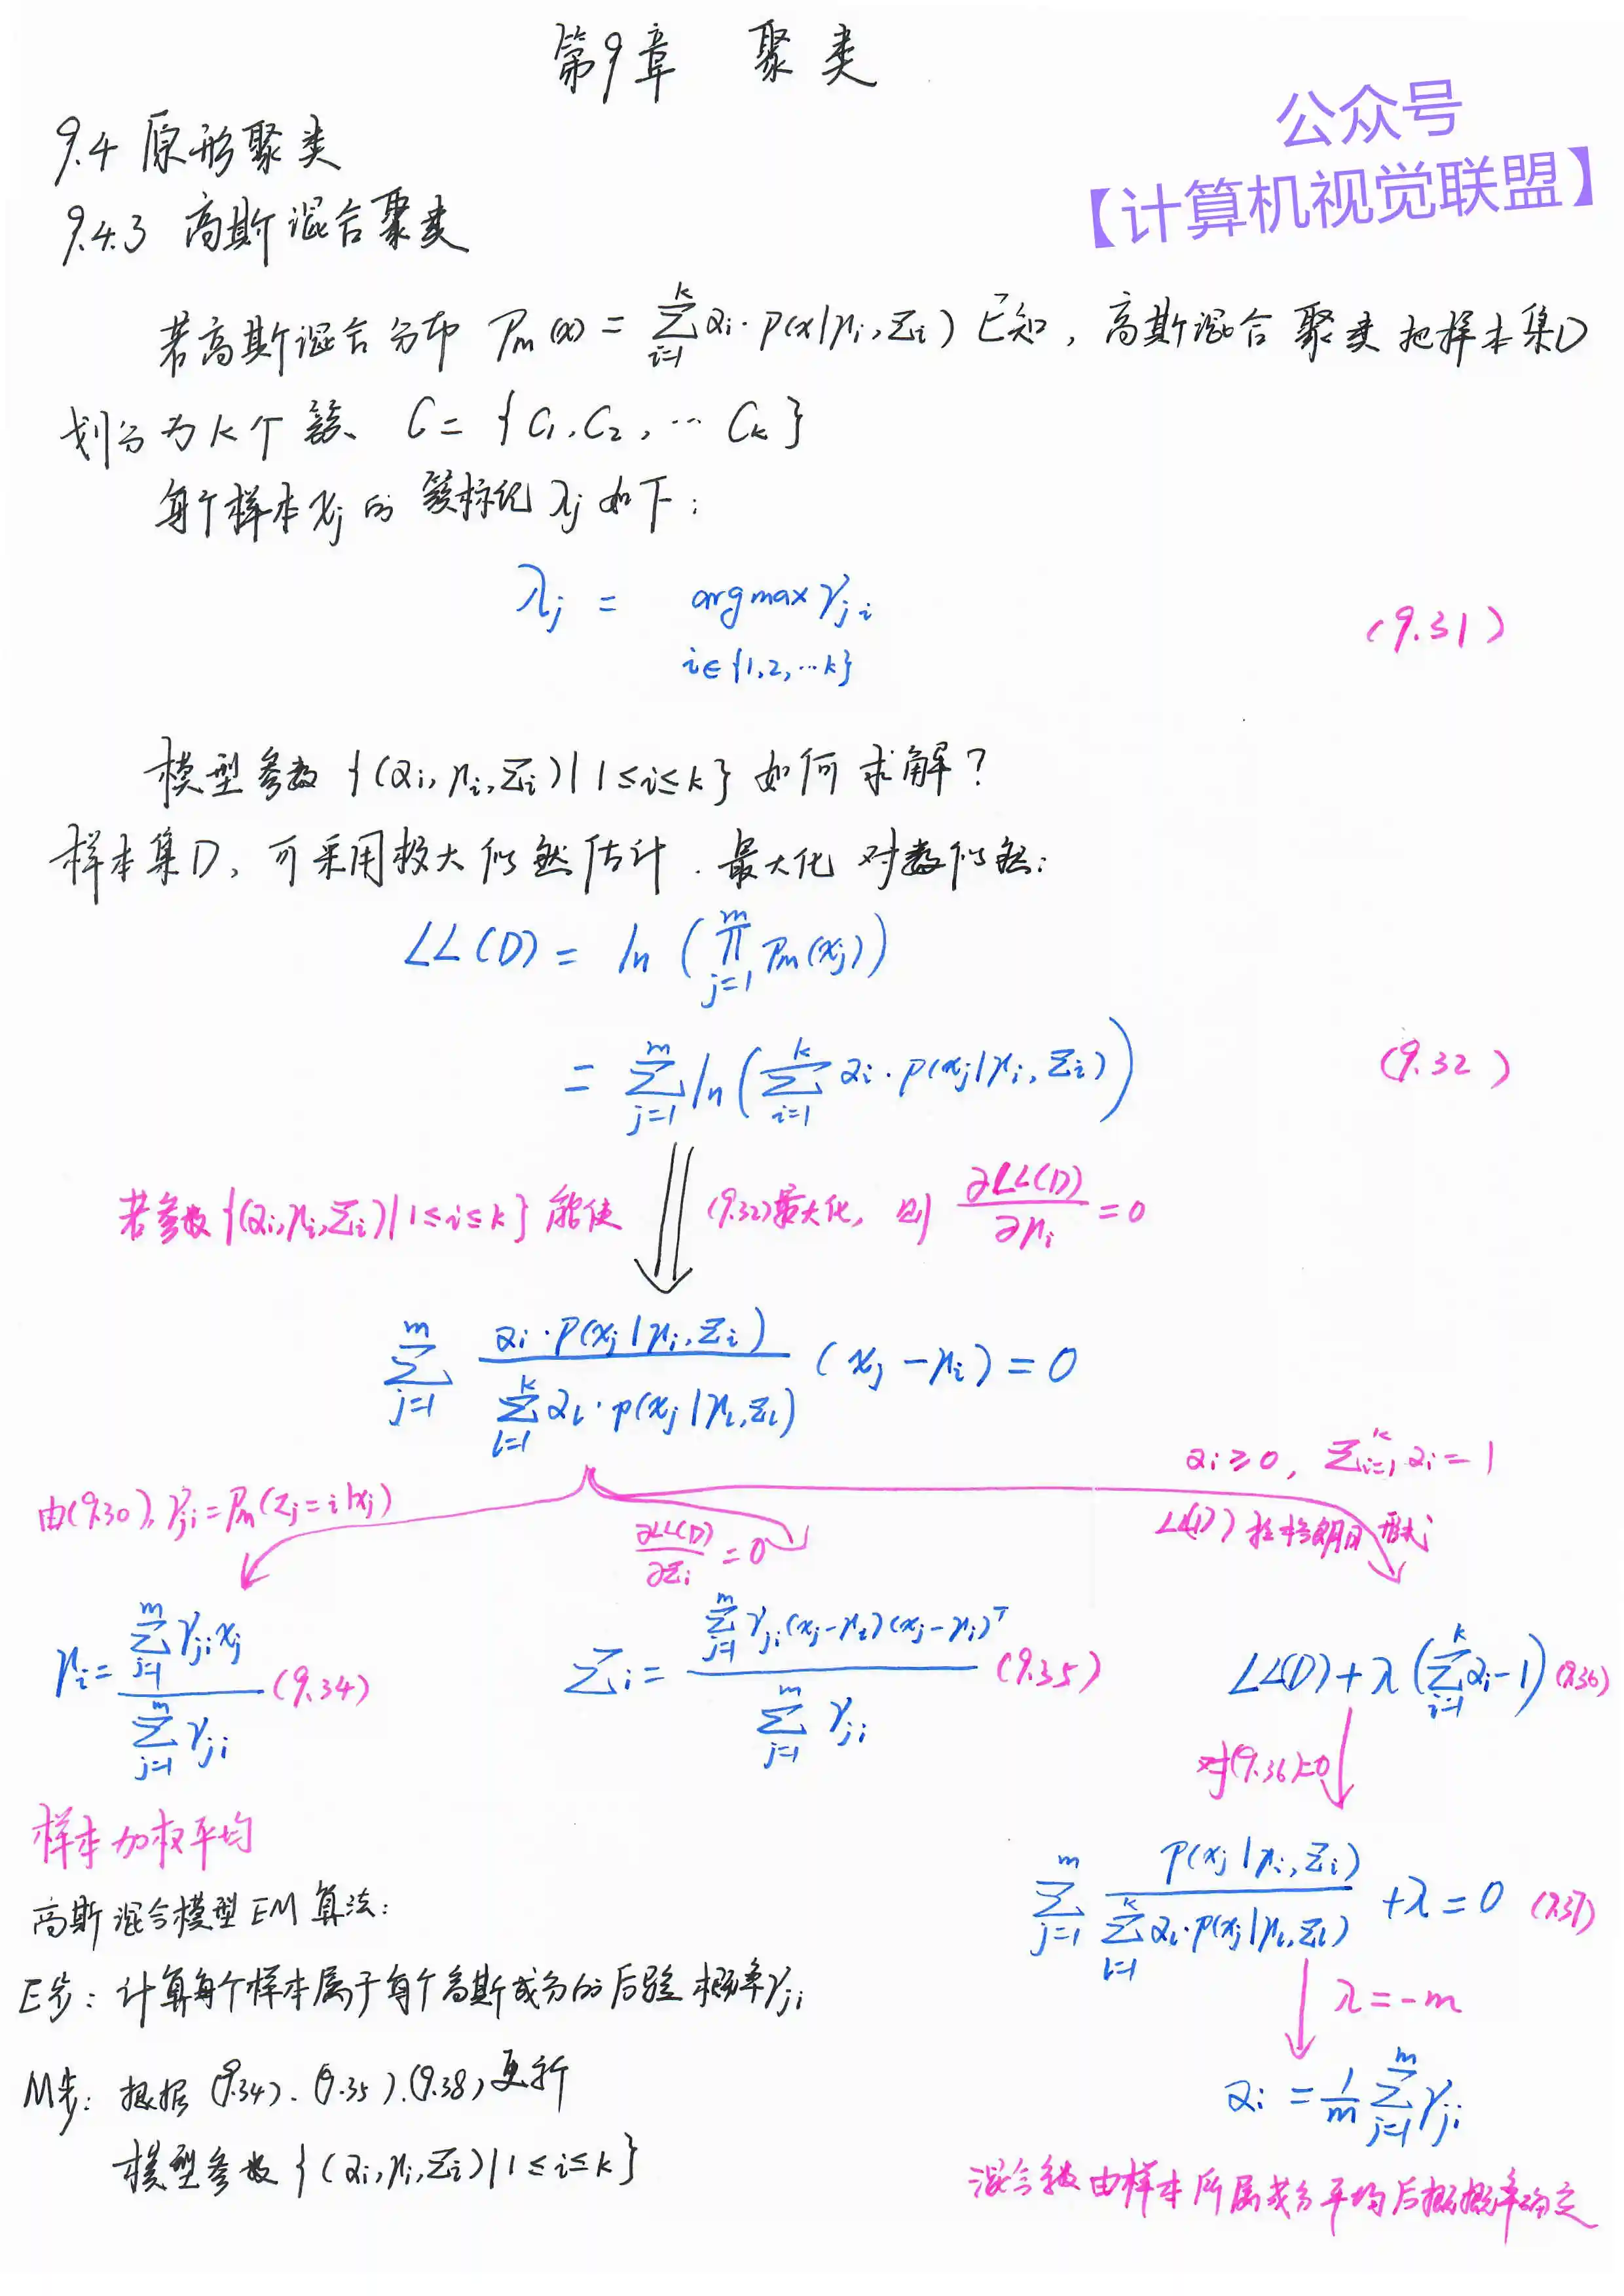 第9章 聚类
公众号
【计算机视觉联盟】
9.4 原形聚类
9.4.3 高斯混合聚类
若高斯混合分布 Pm(x) = ∑_{i=1}^{k} αi · P(x|μi, Σi) 已知, 高斯混合聚类把样本集D
划分为k个簇、 C = {C1, C2, … Ck}
每个样本xj的簇标记λj如下:
λj = argmax γji (9.31)
i∈{1,2,…k}
模型参数{(αi, μi, Σi)|1≤i≤k}如何求解?
样本集D, 可采用极大似然估计. 最大化对数似然:
LL(D) = ln(∏_{j=1}^{m} Pm(xj))
= ∑_{j=1}^{m} ln(∑_{i=1}^{k} αi · P(xj|μi, Σi)) (9.32)
若参数{(αi, μi, Σi)|1≤i≤k}能使 (9.32)最大化, 则 ∂LL(D)/∂μi = 0
∑_{j=1}^{m} αi·P(xj|μi, Σi) / ∑_{l=1}^{k} αl·p(xj|μl, Σl) (xj − μi) = 0
αi ≥ 0, Σ_{i=1}^{k} αi = 1
由(9.30), γji = Pm(zj = i|xj)
∂LL(D)/∂Σi = 0
LL(D) 拉格朗日形式
μi = ∑_{j=1}^{m} γji xj / ∑_{j=1}^{m} γji (9.34)
Σi = ∑_{j=1}^{m} γji (xj−μi)(xj−μi)^T / ∑_{j=1}^{m} γji (9.35)
LL(D) + λ(∑_{i=1}^{k} αi − 1) (9.36)
对(9.36)=0
样本加权平均
∑_{j=1}^{m} P(xj|μi, Σi) / ∑_{l=1}^{k} αl·P(xj|μl, Σl) + λ = 0 (9.37)
λ = −m
αi = 1/m ∑_{j=1}^{m} γji
混合系数由样本所属成分平均后概概率确定
高斯混合模型EM算法:
E步: 计算每个样本属于每个高斯成分的后验概率γji
M步: 根据(9.34).(9.35).(9.38)更新
模型参数{(αi, μi, Σi)|1≤i≤k}